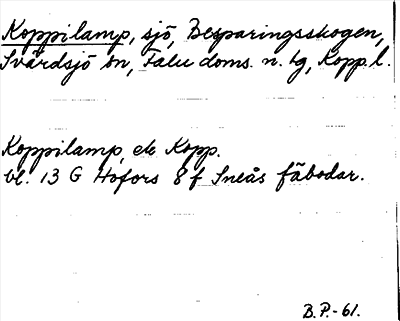 Koppilamp, sjö, Besparingsskogen,
Svärdsjö sn, Falu doms. n. tg, Kopp. l.
Koppilamp, ek Kopp.
bl. 13 G Hofors 8 f Sneås fäbodar.
B.P.-61.